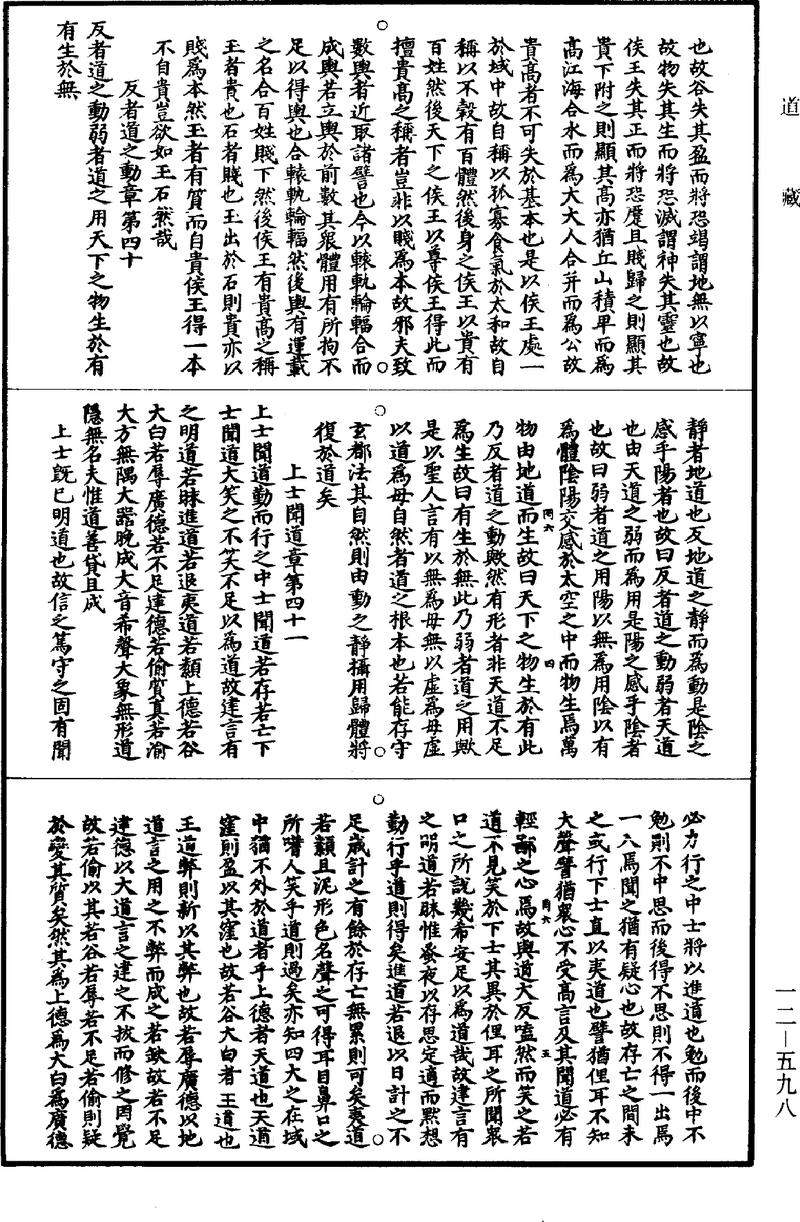 道藏
也故谷失其盈而將恐竭謂地無以寧也
故物失其生而將恐滅謂神失其靈也故
侯王失其正而將恐蹷且賤歸之則顯其
貴下附之則顯其高亦猶丘山積卑而為
高江海合水而為大大人合并而為公故
貴高者不可失於基本也是以侯王處一
於域中故自稱以孤寡食氣於太和故自
稱以不穀有百體然後身之侯王以貴有
百姓然後天下之侯王以尊侯王得此而
擅貴高之稱者豈非以賤為本故邪夫致
數輿者近取諸譬也今以轅軏輪輻合而
成輿若立輿於前數其衆體用有所拘不
足以得輿也合轅軏輪輻然後輿有運載
之名合百姓賤下然後侯王有貴高之稱
玉者貴也石者賤也玉出於石則貴亦以
賤為本然玉者有質而自貴侯王得一本
不自貴豈欲如玉石然哉
反者道之動章第四十
反者道之動弱者道之用天下之物生於有
有生於無
靜者地道也反地道之靜而為動是陰之
感乎陽者也故曰反者道之動弱者天道
也由天道之弱而為用是陽之感乎陰者
也故曰弱者道之用陽以無為用陰以有
為體陰陽交感於太空之中而物生焉萬
物由地道而生故曰天下之物生於有此
乃反者道之動歟然有形者非天道不足
為生故曰有生於無此乃弱者道之用歟
是以聖人言有以無為母無以虛為母虛
以道為母自然者道之根本也若能存守
玄都法其自然則由動之靜攝用歸體將
復於道矣
上士聞道章第四十一
上士聞道勤而行之中士聞道若存若亡下
士聞道大笑之不笑不足以為道故建言有
之明道若昧進道若退夷道若纇上德若谷
大白若辱廣德若不足建德若偷質真若渝
大方無隅大器晚成大音希聲大象無形道
隱無名夫惟道善貸且成
上士既已明道也故信之篤守之固有聞
必力行之中士將以進道也勉而後中不
勉則不中思而後得不思則不得一出焉
一入焉聞之猶有疑心也故存亡之間未
之或行下士直以夷道也譬猶俚耳不知
大聲譬猶衆心不受高言及其聞道必有
輕鄙之心焉故與道大反嗑然而笑之若
道不見笑於下士其異於俚耳之所聞衆
口之所說幾希安足以為道哉故建言有
之明道若昧惟蚤夜以存思定適而默想
勤行乎道則得矣進道若退以日計之不
足歲計之有餘於存亡無累則可矣夷道
若纇且泥形色名聲之可得耳目鼻口之
所嗜人笑乎道則過矣亦知四大之在域
中猶不外於道者乎上德者天道也天道
窪則盈以其窪也故若谷大白者王道也
王道弊則新以其弊也故若辱廣德以地
道言之用之不弊而成之若缺故若不足
建德以大道言之建之不拔而修之因覺
故若偷以其若谷若辱若不足若偷則疑
於變其質矣然其為上德為大白為廣德
同六
四
同六
五
一二—五九八